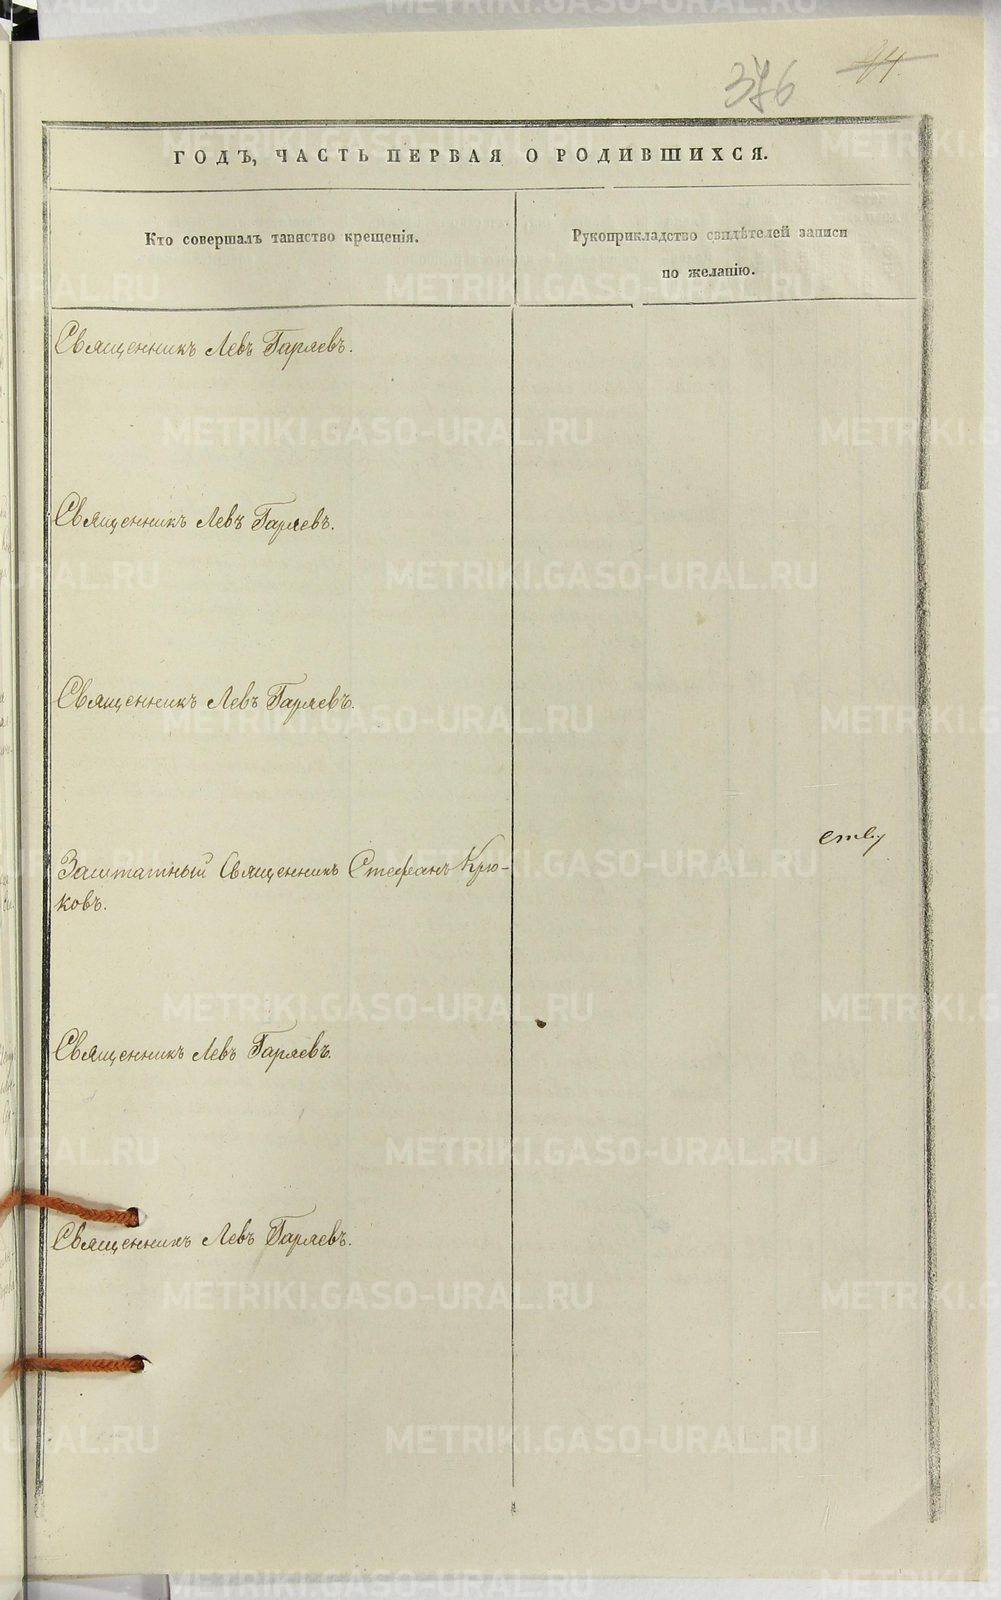 376
ГОДЪ, ЧАСТЬ ПЕРВАЯ О РОДИВШИХСЯ.
Кто совершалъ таинство крещенія.
Рукоприкладство свидѣтелей записи
по желанію.
Священникъ Левъ Гаряевъ.
Священникъ Левъ Гаряевъ.
Священникъ Левъ Гаряевъ.
Заштатный Священникъ Стефанъ Крю-
ковъ.
Священникъ Левъ Гаряевъ.
Священникъ Левъ Гаряевъ.
METRIKI.GASO-URAL.RU